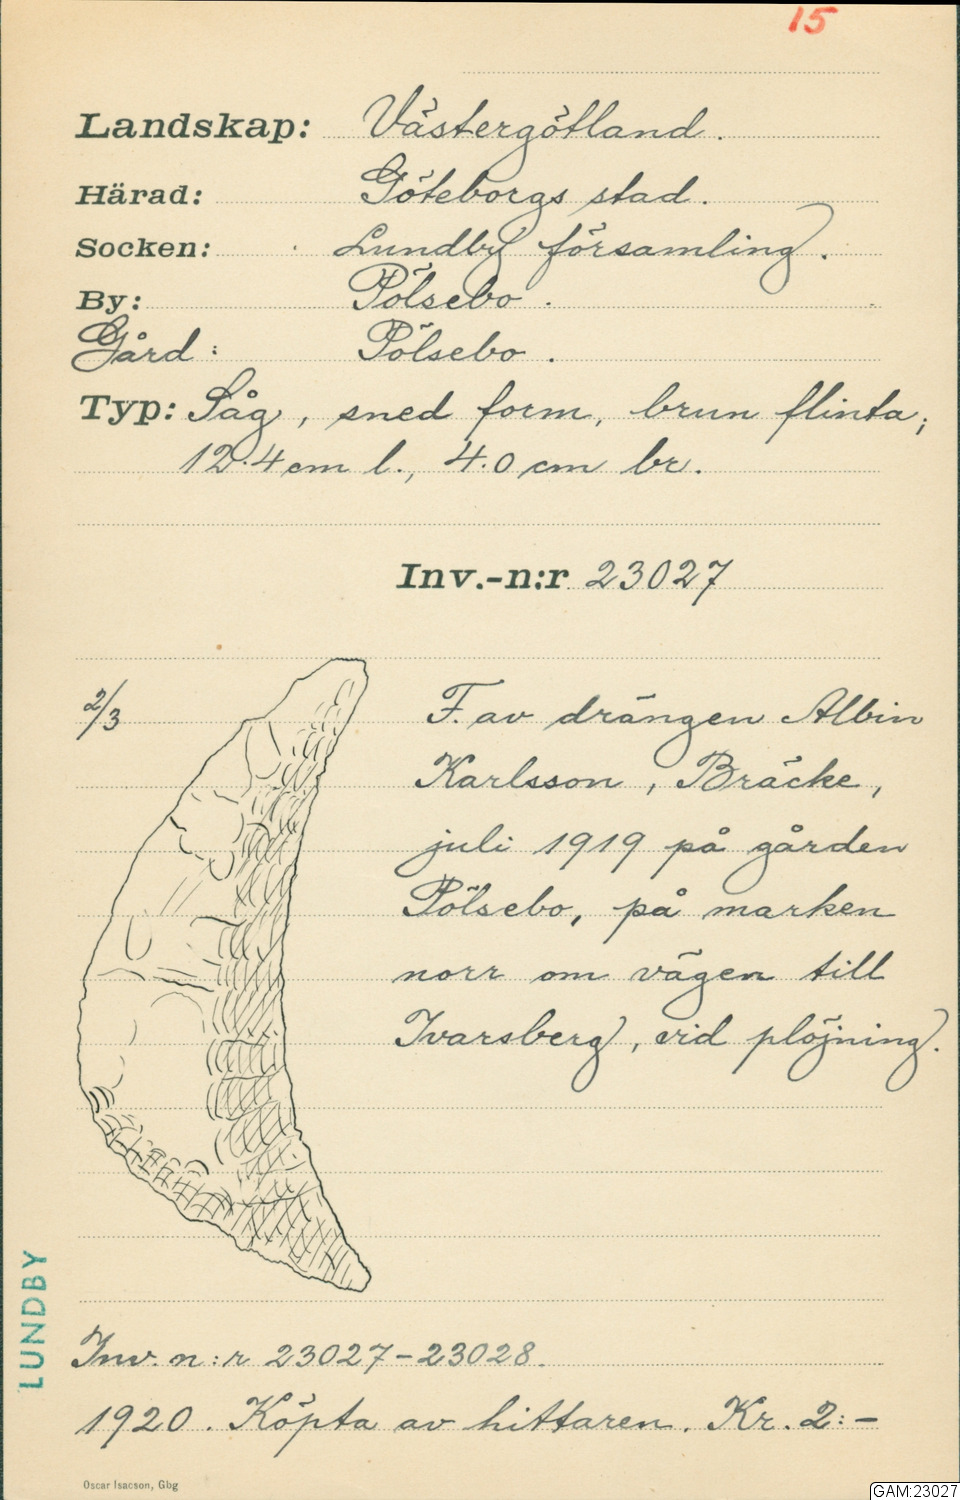 15
Landskap: Västergötland.
Härad: Göteborgs stad.
Socken: Lundby församling.
By: Pölsebo.
Gård: Pölsebo.
Typ: Såg, sned form, brun flinta;
12.4 cm l., 4.0 cm br.
Inv.-n:r 23027
2/3
F. av drängen Albin
Karlsson, Bräcke,
juli 1919 på gården
Pölsebo, på marken
norr om vägen till
Ivarsberg, vid plöjning.
LUNDBY
Inv. n:r 23027-23028.
1920. Köpta av hittaren. Kr. 2:-
Oscar Isacson, Gbg
GAM:23027